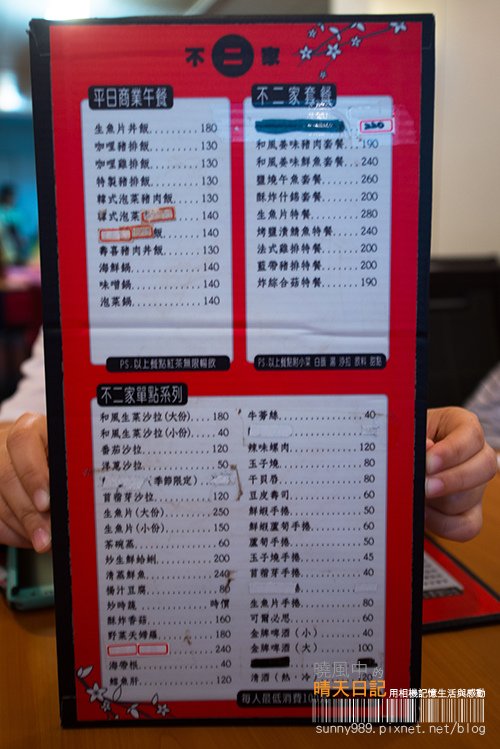 不二家
平日商業午餐
生魚片丼飯.........180
咖哩豬排飯.........130
咖哩雞排飯.........130
特製豬排飯.........130
韓式泡菜豬肉飯.....130
韓式泡菜 140
飯.........140
壽喜豬肉丼飯.......140
海鮮鍋.............140
味噌鍋.............140
泡菜鍋.............140
PS.以上餐點紅茶無限暢飲
不二家套餐
和風姜味豬肉套餐...190
和風姜味鮮魚套餐...240
鹽燒午魚套餐.......260
酥炸什錦套餐.......200
生魚片特餐.........280
烤鹽漬鯖魚特餐.....240
法式雞排特餐.......200
藍帶豬排特餐.......200
炸綜合菇特餐.......190
PS.以上餐點附小菜 白飯 湯 沙拉 飲料 甜點
不二家單點系列
和風生菜沙拉(大份)....180
和風生菜沙拉(小份).....40
番茄沙拉.............120
洋蔥沙拉..............50
(季節限定)
苜蓿芽沙拉 120
生魚片(大份).........250
生魚片(小份).........150
茶碗蒸................60
炒生鮮蛤蜊...........200
清蒸鮮魚.............240
楊汁豆腐..............80
炒時蔬..............時價
酥炸香菇.............160
野菜天婦羅...........180
240
海帶根................40
鱈魚肝...............120
牛蒡絲................40
辣味螺肉.............120
玉子燒................80
干貝唇................80
豆皮壽司..............60
鮮蝦手捲..............50
鮮蝦蘆筍手捲..........60
蘆筍手捲..............50
玉子燒手捲............45
苜蓿芽手捲............40
生魚片手捲............80
可爾必思..............60
金牌啤酒(小)..........40
金牌啤酒(大).........100
清酒(熱.冷) 100
每人最低消費10
曉風中的
晴天日記 用相機記憶生活與感動
sunny989.pixnet.net/blog